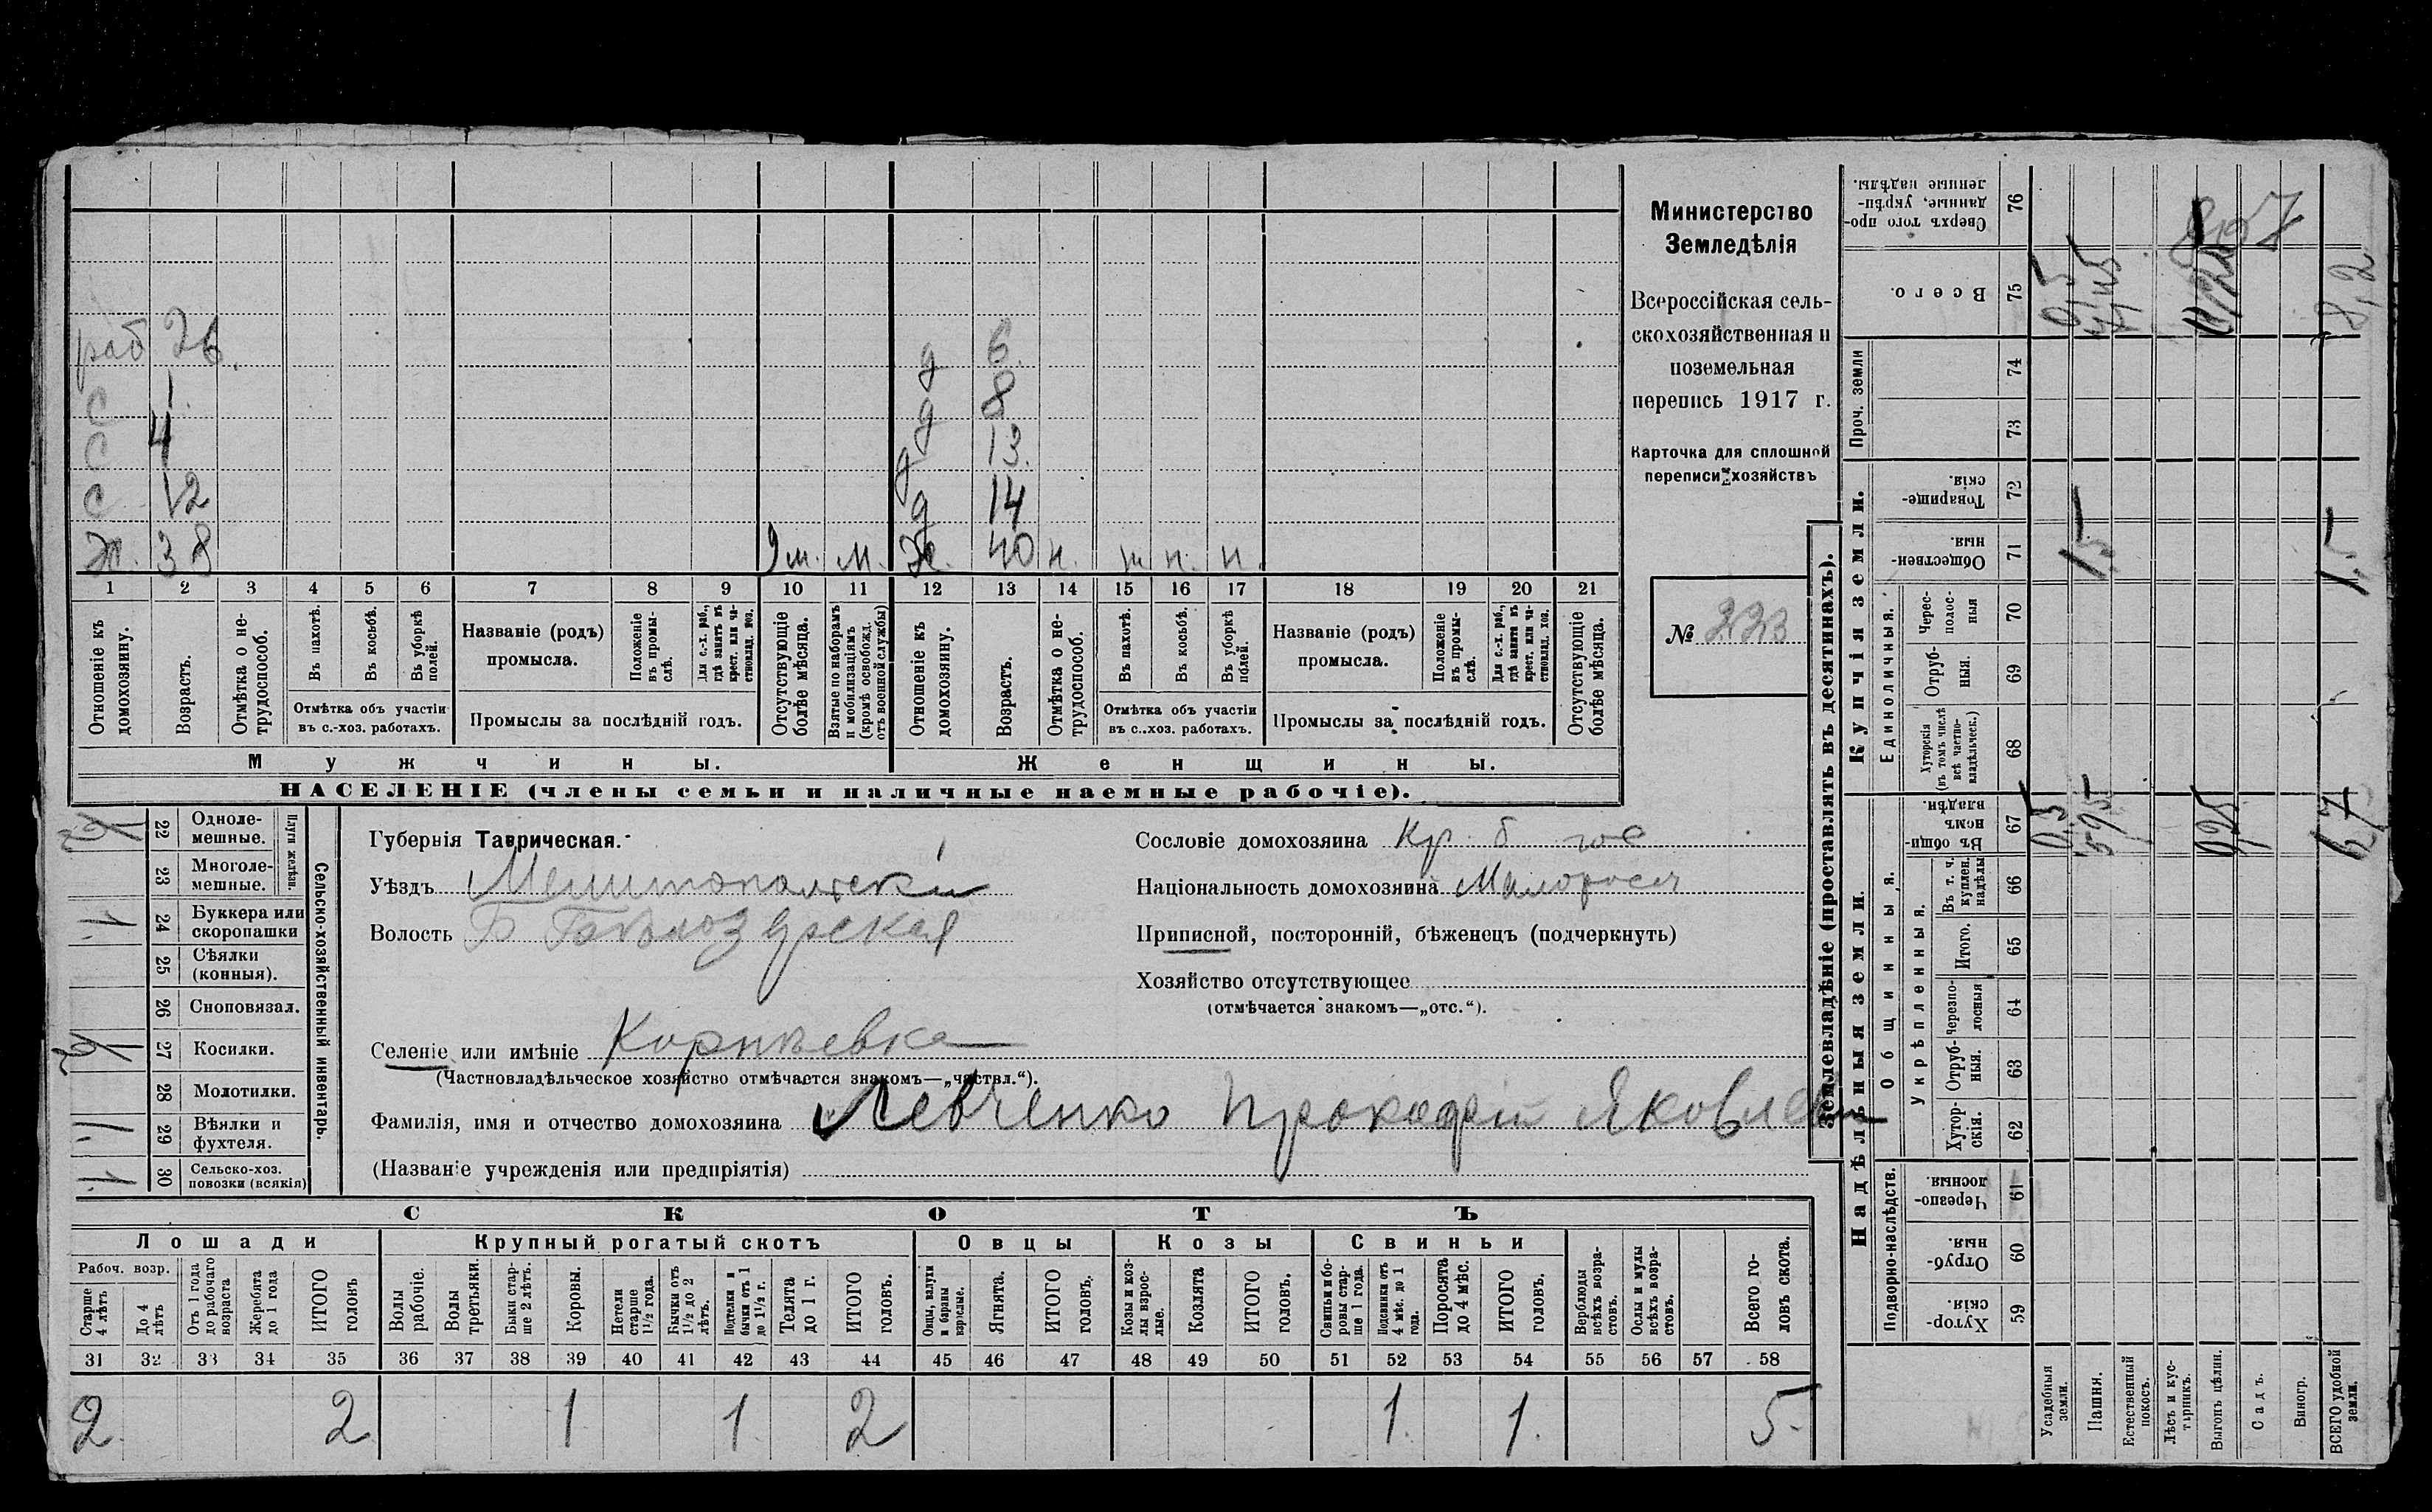 раб 26.
С 1
С 4
С 12
Ж. 38 9 м. м.
д 6.
д 8
д 13.
д 14
Ж. 40 п. ж п. п.
1 2 3 4 5 6 7 8 9 10 11 12 13 14 15 16 17 18 19 20 21
Отношеніе къ домохозяину.
Возрастъ.
Отмѣтка о не-трудоспособ.
Въ пахотѣ.
Въ косьбѣ.
Въ уборкѣ полей.
Отмѣтка объ участіи
въ с.-хоз. работахъ.
Названіе (родъ)
промысла.
Положеніе въ промы-слѣ.
Для с.-х. раб., гдѣ занятъ въ крест. или ча-стновлад. хоз.
Промыслы за послѣдній годъ.
Отсутствующіе болѣе мѣсяца.
Взятые по наборамъ и мобилизаціямъ (кромѣ освобожд. отъ военной службы)
Отношеніе къ домохозяину.
Возрастъ.
Отмѣтка о не-трудоспособ.
Въ пахотѣ.
Въ косьбѣ.
Въ уборкѣ полей.
Отмѣтка объ участіи
въ с.-хоз. работахъ.
Названіе (родъ)
промысла.
Положеніе въ промы-слѣ.
Для с.-х. раб., гдѣ занята въ крест. или ча-стновлад. хоз.
Промыслы за послѣдній годъ.
Отсутствующіе болѣе мѣсяца.
Мужчины.
Женщины.
НАСЕЛЕНІЕ (члены семьи и наличные наемные рабочіе).
Министерство
Земледѣлія
Всероссійская сель-
скохозяйственная и
поземельная
перепись 1917 г.
Карточка для сплошной
переписи хозяйствъ
№ 223
22 Одноле-мешные.
23 Многоле-мешные.
Плуги желѣзн.
1 24 Буккера или скоропашки
25 Сѣялки (конныя).
26 Сноповязал.
27 Косилки.
28 Молотилки.
29 Вѣялки и фухтеля.
1 30 Сельско-хоз. повозки (всякія)
Сельско-хозяйственный инвентарь.
Губернія Таврическая.
Уѣздъ Мелитопольскій
Волость Б Бѣлозерская
Сословіе домохозяина Кр. б
Національность домохозяина Малороссъ
Приписной, посторонній, бѣженецъ (подчеркнуть)
Хозяйство отсутствующее
(отмѣчается знакомъ—„отс.“).
Селеніе или имѣніе Корнѣевка
(Частновладѣльческое хозяйство отмѣчается знакомъ—„частвл.“).
Фамилія, имя и отчество домохозяина Левченко Прокофій Яковлев
(Названіе учрежденія или предпріятія)
СКОТЪ
Лошади
Крупный рогатый скотъ
Овцы
Козы
Свиньи
Рабоч. возр.
Старше 4 лѣтъ
До 4 лѣтъ
Отъ 1 года до рабочаго возраста
Жеребята до 1 года
ИТОГО головъ
Волы рабочіе.
Волы третьяки.
Быки стар-ше 2 лѣтъ.
Коровы.
Нетели старше 1½ года.
Бычки отъ 1½ до 2 лѣтъ.
Подтелки и бычки отъ 1 до 1½ г.
Телята до 1 г.
ИТОГО головъ.
Овцы, валухи и бараны взрослые.
Ягнята.
ИТОГО головъ.
Козы и коз-лы взрос-лые.
Козлята
ИТОГО головъ.
Свиньи и бо-ровы стар-ше 1 года.
Подсвинки отъ 4 мѣс. до 1 года.
Поросята до 4 мѣс.
ИТОГО головъ.
Верблюды всѣхъ возра-стовъ.
Ослы и мулы всѣхъ возра-стовъ.
Всего го-ловъ скота.
31 32 33 34 35 36 37 38 39 40 41 42 43 44 45 46 47 48 49 50 51 52 53 54 55 56 57 58
2 2 1 1 2 1. 1. 5.
Землевладѣніе (проставлять въ десятинахъ).
Надѣльныя земли.
Купчія земли.
Проч. земли
Подворно-наслѣдств.
Общинныя.
Укрѣпленныя.
Единоличныя.
59 Хутор-скія.
60 Отруб-ныя.
61 Черезпо-лосныя.
62 Хутор-скія.
63 Отруб-ныя.
64 Черезпо-лосныя
65 Итого.
66 Въ т. ч. куплен. надѣлы
67 Въ общи-номъ владѣн.
68 Хуторскія (въ томъ числѣ всѣ частно-владѣльческ.)
69 Отруб-ныя.
70 Черес-полос-ныя
71 Обществен-ныя.
72 Товарище-скія.
73
74
75 Всего.
76 Сверхъ того про-данные, укрѣп-ленные надѣлы.
Усадебныя земли.
Пашня.
Естественный покосъ.
Лѣсъ и кус-тарникъ.
Выгонъ цѣлин.
Садъ.
Виногр.
ВСЕГО удобной земли.
0,5
5,95
6,7
8,2